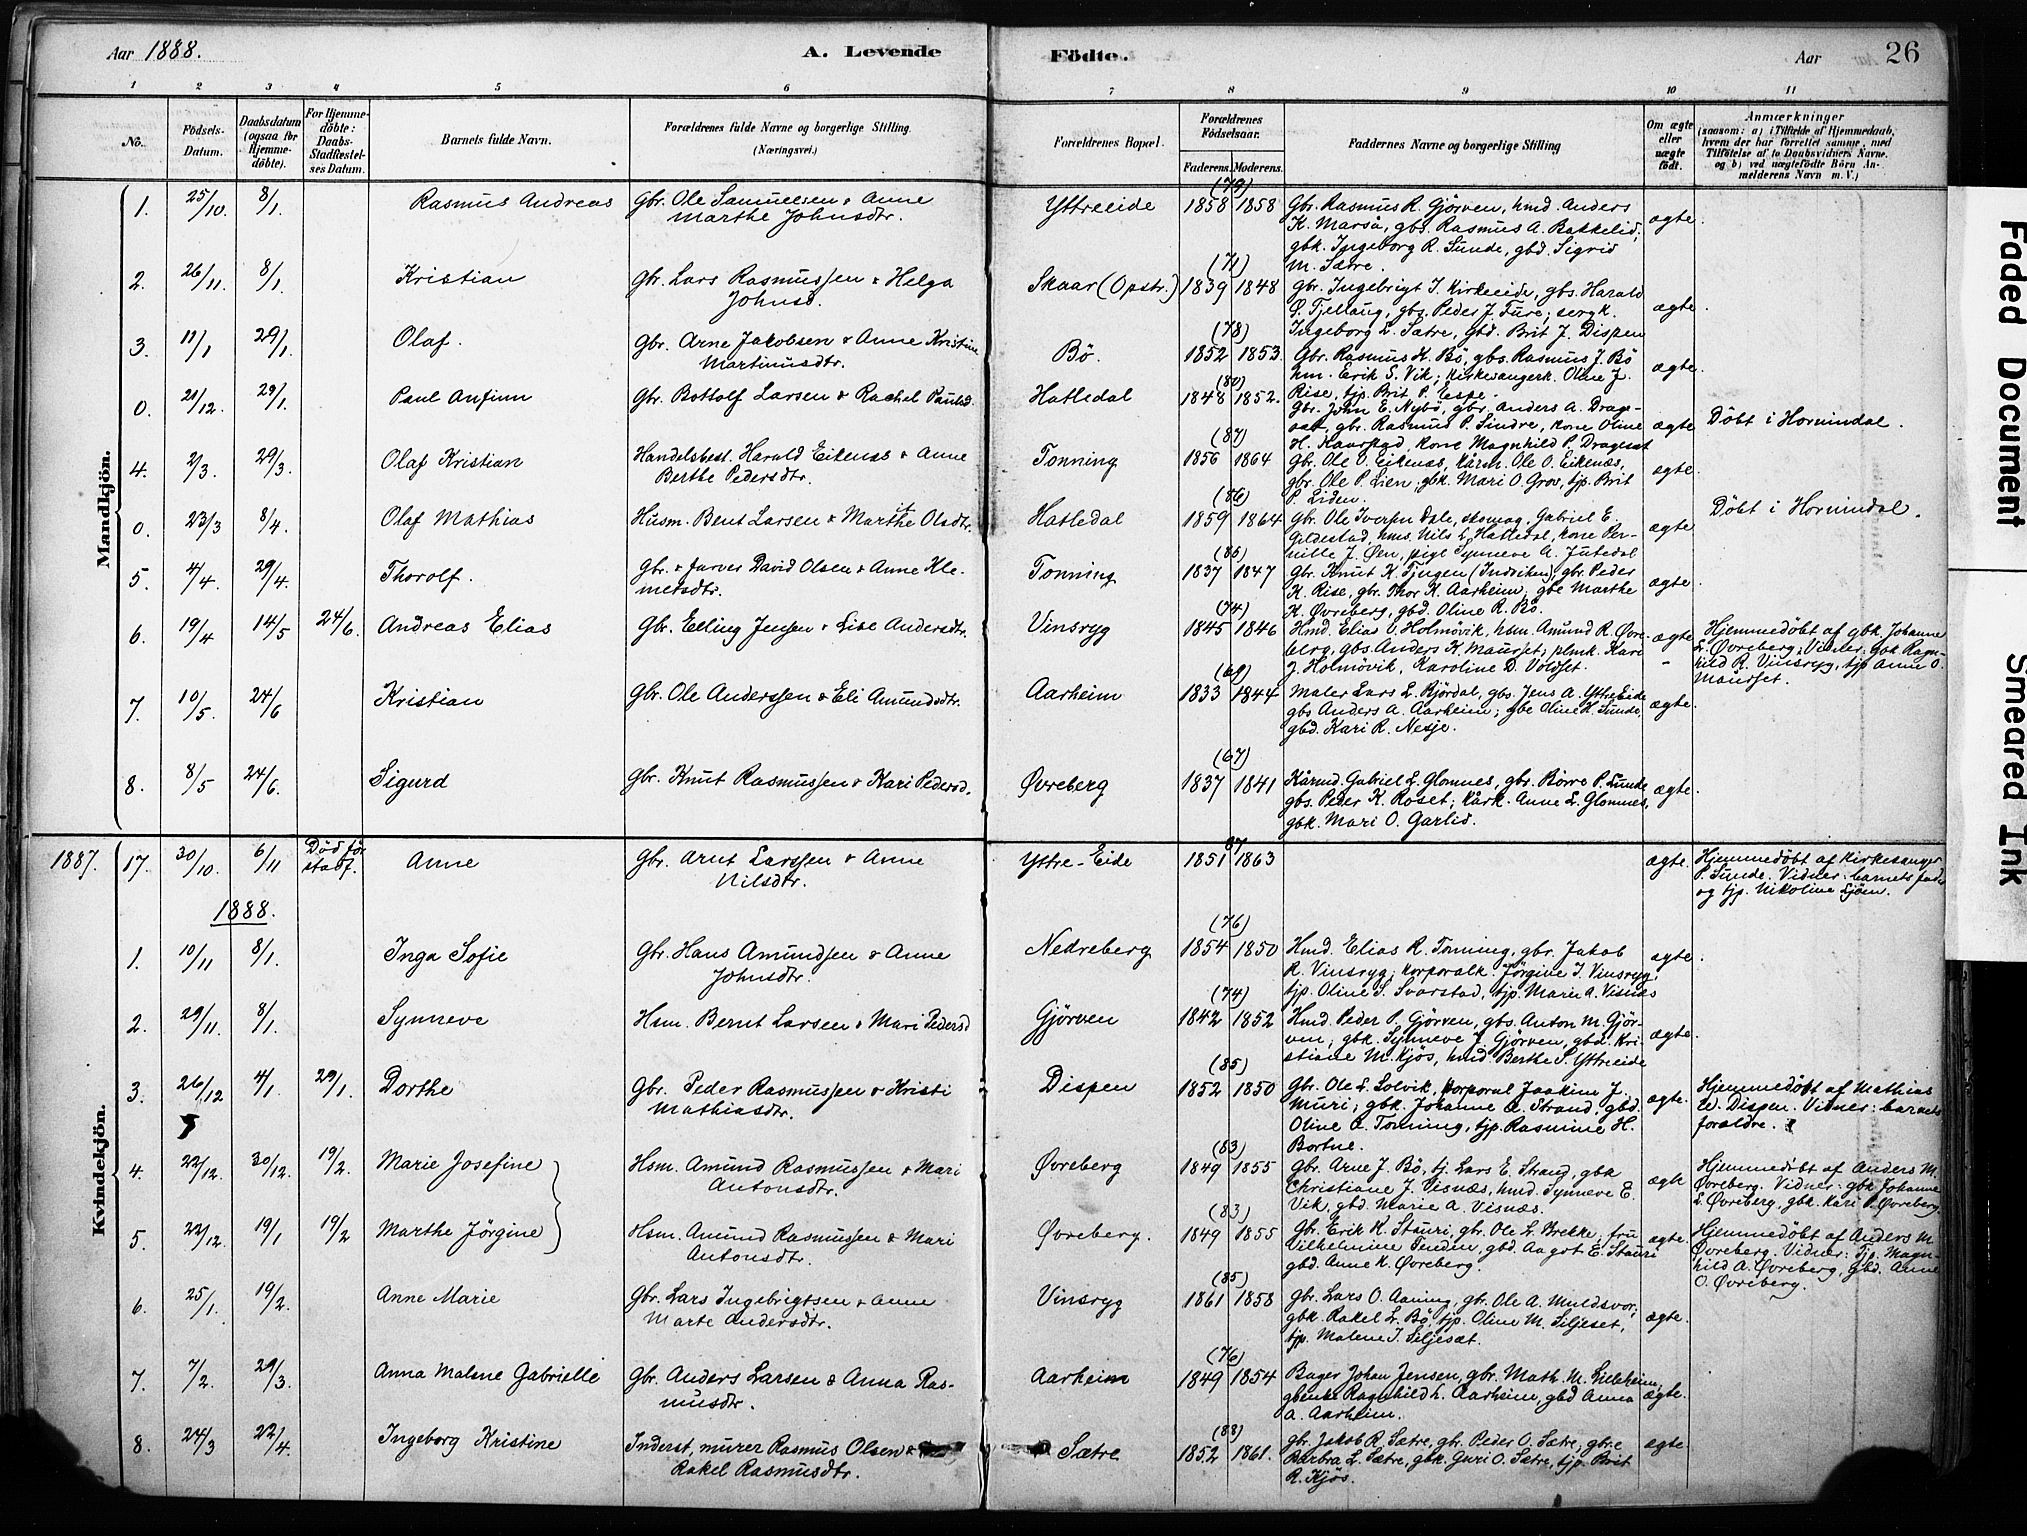 Aar 1888.
A. Levende
Födte.
Aar
26
1 2 3 4 5 6 7 8 9 10 11
No.
Födsels-Datum.
Daabsdatum (ogsaa for Hjemme-döbte).
For Hjemme-döbte: Daabs-Stadfæstel-ses Datum.
Barnets fulde Navn.
Forældrenes fulde Navne og borgerlige Stilling.
(Næringsvei.)
Forældrenes Bopæl.
Forældrenes Födselsaar.
Faderens. Moderens.
Faddernes Navne og borgerlige Stilling
Om ægte eller uægte födt.
Anmærkninger
(saasom: a) i Tilfælde af Hjemmedaab, hvem der har forrettet samme, med Tilföielse af to Daabsvidners Navne, og b) ved uægtefödte Börn An-melderens Navn m. V.)
Mandkjön.
1. 25/10. 8/1. Rasmus Andreas Gbr. Ole Samuelsen & Anne
Marthe Johnsdtr. Yttreeide (79) 1858 1858 Gbr. Rasmus R. Gjörven, hmd. Anders
K. Marså, gbs. Rasmus A. Bakkelid;
gbk. Ingeborg R. Sunde, gbd. Sigrid
M. Sætre. ægte.
2. 26/11. 8/1. Kristian Gbr. Lars Rasmussen & Helga
Johnsd. Skaar (Opstr.) (71) 1839 1848 Gbr. Ingebrigt J. Kirkeeide, gbs. Harald
P. Tjellaug, gbs. Peder J. Fure; sergk.
Ingeborg L. Sætre, gbd. Brit J. Dispen ægte.
3. 11/1 29/1. Olaf. Gbr. Arne Jakobsen & Anne Kristine
Martinusdtr. Bö. (78) 1852 1853. Gbr. Rasmus H. Bö, gbs. Rasmus J. Bö
hm. Erik S. Vik; kirkesangerk. Oline J.
Rise, tjp. Brit P. Espe. ægte.
0. 21/12. 29/1. Paul Anfinn Gbr. Bottolf Larsen & Rachel Paulsd. Hatledal (80) 1848 1852. Gbr. John E. Nybö, gbr. Anders A. Drage-
sæt, gbr. Rasmus P. Lindre, kone Oline
H. Haarstad, kone Magnhild P. Dragesæt ægte Döbt i Hornindal.
4. 2/3. 29/3. Olaf Kristian Handelsbest. Harald Eikenæs & Anne
Berthe Pedersdtr. Tonning (87) 1856 1864 Gbr. Ole O. Eikenæs, kårm. Ole O. Eikenæs,
gbr. Ole P. Lien; gbk. Mari O. Grov, tjp. Brit
P. Liden. ægte
0. 23/3 8/4. Olaf Mathias Husm. Bent Larsen & Marthe Olsdtr. Hatledal (86) 1859 1864 Gbr. Ole Iversen Dale, skomag. Gabriel E.
Gildestad, hms. Nils L. Hatledal, kone Per-
nille J. Øen, pige Synneve A. Jutedal ægte Döbt i Hornindal.
5. 4/4. 29/4. Thorolf. Gbr. & farver David Olsen & Anne Kle-
metsdtr. Tonning (85) 1837 1847 Gbr. Knut K. Tjugen (Indviken), gbr. Peder
K. Rise, gbr. Thor K. Aarheim; gbe Marthe
K. Øvreberg, gbd. Oline R. Bö. ægte.
6. 19/4 14/5 24/6. Andreas Elias Gbr. Elling Jensen & Lise Andersdtr. Vinsryg (74) 1845 1846 Hmd. Elias O. Holmövik, hsm. Amund R. Øvre-
berg, gbs. Anders K. Maurset; plmk. Kari
J. Holmövik, Karoline D. Voldset. ægte Hjemmedöbt af gbk. Johanne
L. Øvreberg. Vidner: gbk Ragn-
hild R. Vinsryg, tjp Anne O.
Maurset.
7. 10/5. 24/6 Kristian Gbr. Ole Anderssen & Eli Amundsdtr. Aarheim (69) 1833 1844 Maler Lars L. Rjördal, gbs. Jens A. YttreEide
gbs Anders A. Aarheim; gbe Oline H. Sunde,
gbd. Kari R. Nesje. ægte.
8. 8/5 24/6. Sigurd Gbr. Knut Rasmussen & Kari Pedersd. Øvreberg (67) 1837 1841 Kårmd. Gabriel L. Glomnes, gbr. Börre P. Sunde
gbs. Peder K. Roset; kårk. Anne L. Glomnes,
gbk. Mari O. Garlid. ægte.
Kvindekjön.
1887. 17. 30/10. 6/11 Död för stadf. Anne Gbr. Arnt Larssen & Anne
Nilsdtr. Yttre-Eide 87 1851 1863 ægte. Hjemmedöbt af Kirkesanger
P. Sunde. Vidner: barnets fader
og tjp. Nikoline Sjöen.
1888.
1. 10/11 8/1. Inga Sofie Gbr. Hans Amundsen & Anne
Johnsdtr. Nedreberg (76) 1854 1850 Hmd. Elias R. Tonning, gbr. Jakob
R. Vinsryg; korporalk. Jörgine J. Vinsryg,
tjp. Oline S. Svarstad, tjp. Marie A. Visnæs ægte.
2. 29/11. 8/1. Synneve Hsm. Bernt Larsen & Mari Pedersd Gjörven (74) 1842 1852 Hmd. Peder P. Gjörven, gbs. Anton M. Gjör-
ven; gbk. Synneve J. Gjörven, gbd. Kri-
stiane M. Kjös, hmd Berthe S. Yttreeide ægte.
3. 26/12 4/1. 29/1. Dorthe Gbr. Peder Rasmussen & Kristi
Mathiasdtr. Dispen (85) 1852 1850 Gbr. Ole L. Solvik, korporal Joakim J.
Muri; gbk. Johanne A. Strand, gbd.
Oline A. Tonning, tjp. Rasmine H.
Bortne. ægte. Hjemmedöbt af Mathias
W. Dispen. Vidner: barnets
forældre.
4. 22/12. 30/12. 19/2. Marie Josefine Hsm. Amund Rasmussen & Mari
Antonsdtr. Øvreberg (83) 1849 1855 Gbr. Arne J. Bö, tj. Lars E. Strand, gbk
Christiane J. Visnæs, hmd. Synneve E.
Vik, gbd. Marie A. Visnæs. ægte Hjemmedöbt af Anders M.
Øvreberg. Vidner: gbk Johanne
L. Øvreberg, gbk. Kari P. Øvreberg.
5. 22/12. 19/1 19/2 Marthe Jörgine Hsm. Amund Rasmussen & Mari
Antonsdtr. Øvreberg. (83) 1849 1855 Gbr. Erik K. Stauri, gbr. Ole L. Brekke; fru
Vilhelmine Tenden, gbd. Aagot E. Stauri
gbd. Anne K. Øvreberg. ægte. Hjemmedöbt af Anders M.
Øvreberg. Vidner: Tjp. Magn-
hild A. Øvreberg, gbd. Anne
O. Øvreberg.
6. 25/1. 19/2. Anne Marie Gbr. Lars Ingebrigtsen & Anne
Marte Andersdtr. Vinsryg (85) 1861 1858 Gbr. Lars O. Aaning, gbr. Ole A. Muldsvor;
gbk. Rakel L. Bö, tjp. Oline M. Siljeset,
tjp. Malene J. Siljeset. ægte.
7. 7/2. 29/3. Anna Malene Gabrielle Gbr. Anders Larsen & Anna Ras-
musdtr. Aarheim (76) 1849 1854 Bager Johan Jensen, gbr. Math. M. Lilleheim,
gbenke Ragnhild L. Aarheim, gbd Anna
A. Aarheim. ægte.
8. 24/3 22/4. Ingeborg Kristine Inderst, murer Rasmus Olsen &
Rakel Rasmusdtr. Sætre (88) 1852 1861. Gbr. Jakob R. Sætre, gbr. Peder O. Sætre; gbre
Barbra L. Sætre, gbk. Guri O. Sætre, tjp. Brit
R. Kjös. ægte
Faded Document
Smeared Ink